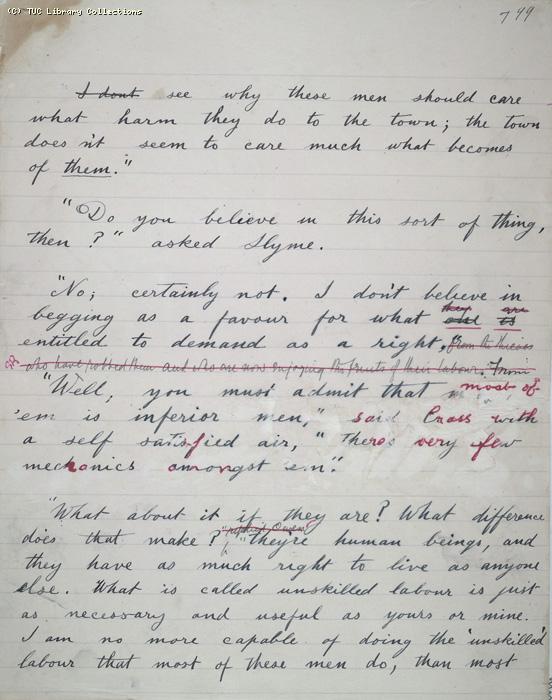 (C) TUC Library Collections
799
I dont see why these men should care
what harm they do to the town; the town
does n't seem to care much what becomes
of them."
"Do you believe in this sort of thing,
then?" asked Slyme.
"No; certainly not. I don't believe in
begging as a favour for what they are
entitled to demand as a right, from the thieves
who have robbed them and who are now enjoying the fruits of their labour. From
"Well, you must admit that most of
'em is inferior men," said Crass with
a self satisfied air, "theres very few
mechanics amongst 'em".
"What about it if they are? What difference
does that make?" replied Owen "they're human beings, and
they have as much right to live as anyone
else. What is called unskilled labour is just
as necessary and useful as yours or mine.
I am no more capable of doing the 'unskilled'
labour that most of these men do, than most